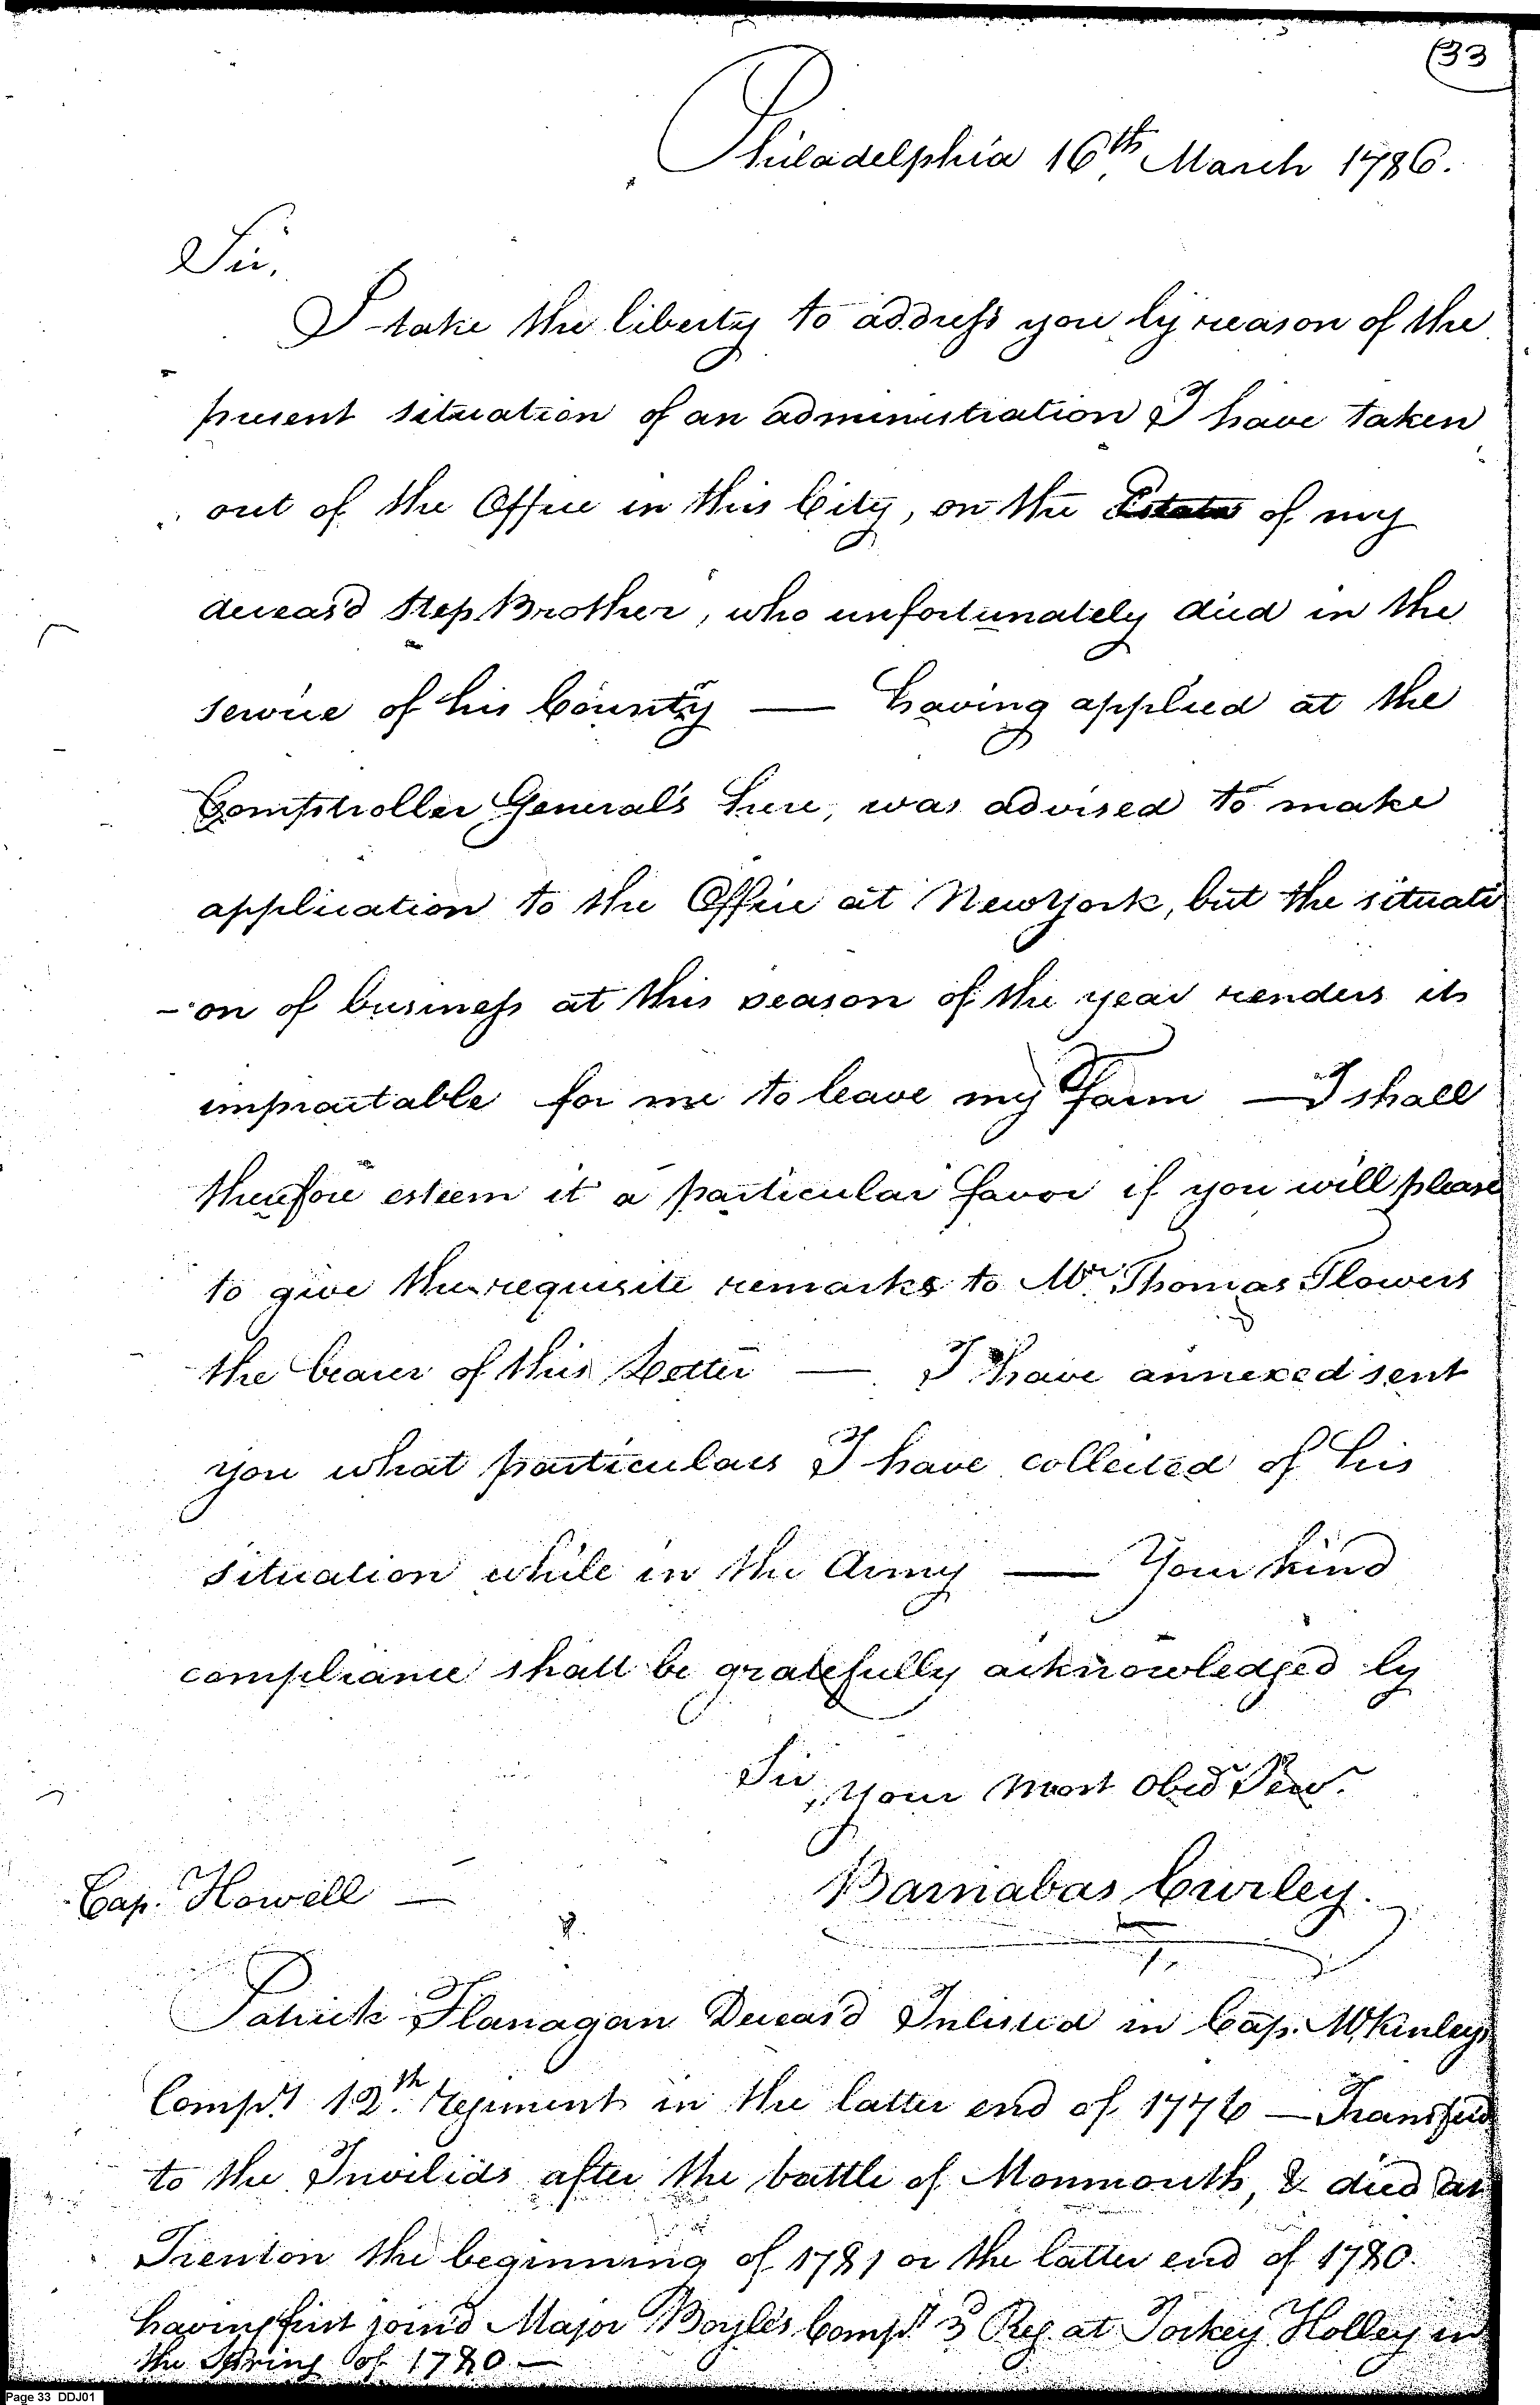 (33
Philadelphia 16th March 1786.
Sir,
I take the liberty to address you by reason of the
present situation of an administration I have taken
out of the Office in this City, on the Estate of my
deceas'd Step Brother, who unfortunately died in the
service of his County — having applied at the
Comptroller General's here, was advised to make
application to the Office at New York, but the situati
-on of business at this season of the year renders it
impractable for me to leave my Farm — I shall
therefore esteem it a particular favor if you will please
to give the requisite remarks to Mr. Thomas Flowers
the bearer of this Letter — I have annexed sent
you what particulars I have collected of his
situation while in the Army — Your kind
compliance shall be gratefully acknowledged by
Sir
your most Obed Serv.
Barnabas Curley.
Cap. Howell —
Patrick Flanagan Deceas'd Inlisted in Cap. McKinleys
Compy 12th regiment in the latter end of 1776 — Transferd
to the Invilids after the battle of Monmouth, & died at
Trenton the beginning of 1781 or the latter end of 1780.
having first join'd Major Boyles Compy 3d Reg. at Jockey Holley in
the Spring of 1780 —
Page 33 DDJ01